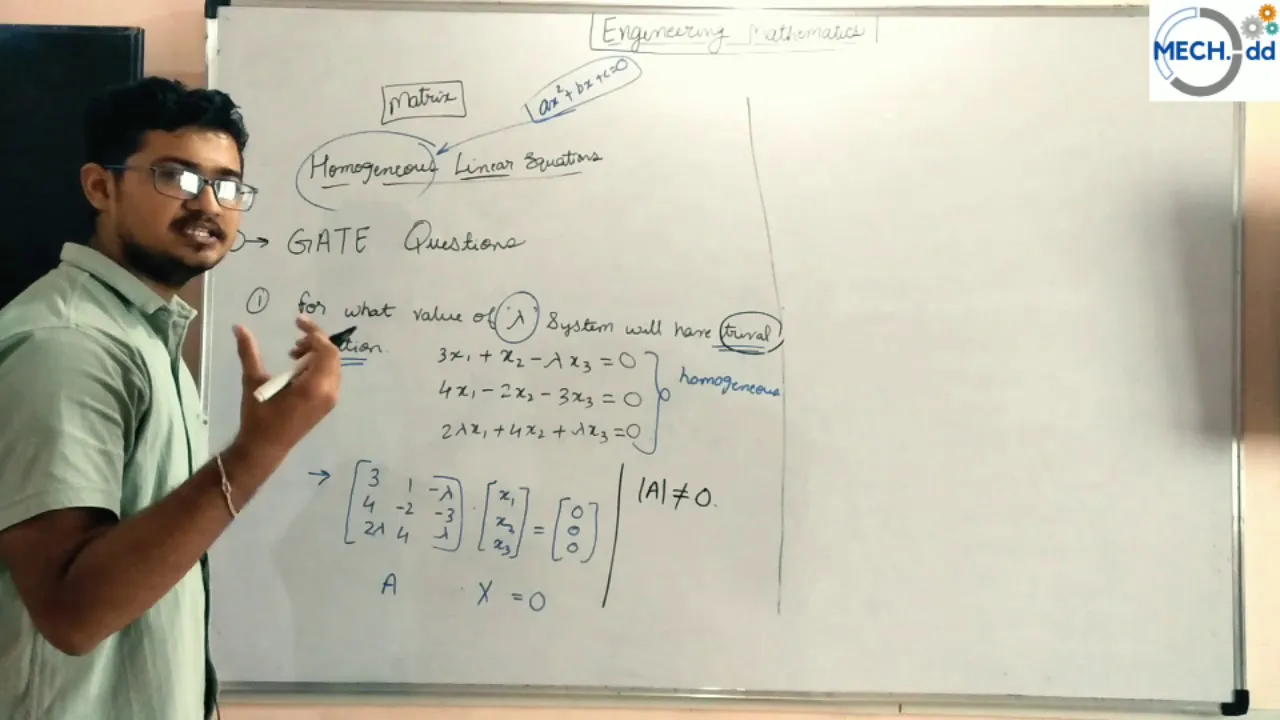 Engineering Mathematics
MECH.dd
Matrix
ax² + bx + c = 0
Homogeneous Linear Equations
→ GATE Questions
① for what value of 'λ' System will have trival
tion.
3x₁ + x₂ - λx₃ = 0
4x₁ - 2x₂ - 3x₃ = 0
2λx₁ + 4x₂ + λx₃ = 0
homogeneous
→ [3 1 -λ; 4 -2 -3; 2λ 4 λ] · [x₁; x₂; x₃] = [0; 0; 0]
|A| ≠ 0.
A X = 0